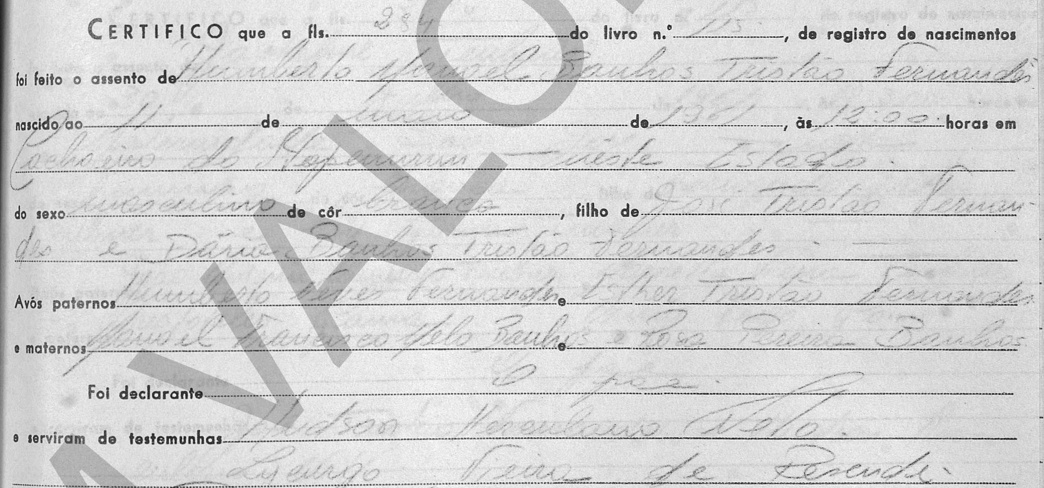 CERTIFICO que a fls. 294 do livro n.º 115, de registro de nascimentos
foi feito o assento de Humberto Manoel Banhos Tristão Fernandes
nascido ao 11 de maio de 1961, às 12:00 horas em
Cachoeiro do Itapemirim - neste Estado.
do sexo masculino de côr branca, filho de José Tristão Fernan-
des e Dária Banhos Tristão Fernandes. -
Avós paternos Humberto Neves Fernandes e Esther Tristão Fernandes
e maternos Manoel Francisco Melo Banhos e e Rosa Pereira Banhos
Foi declarante O pai.
e serviram de testemunhas Hudson Herculano Melo.
Lycurgo Vieira de Rezende
VALO